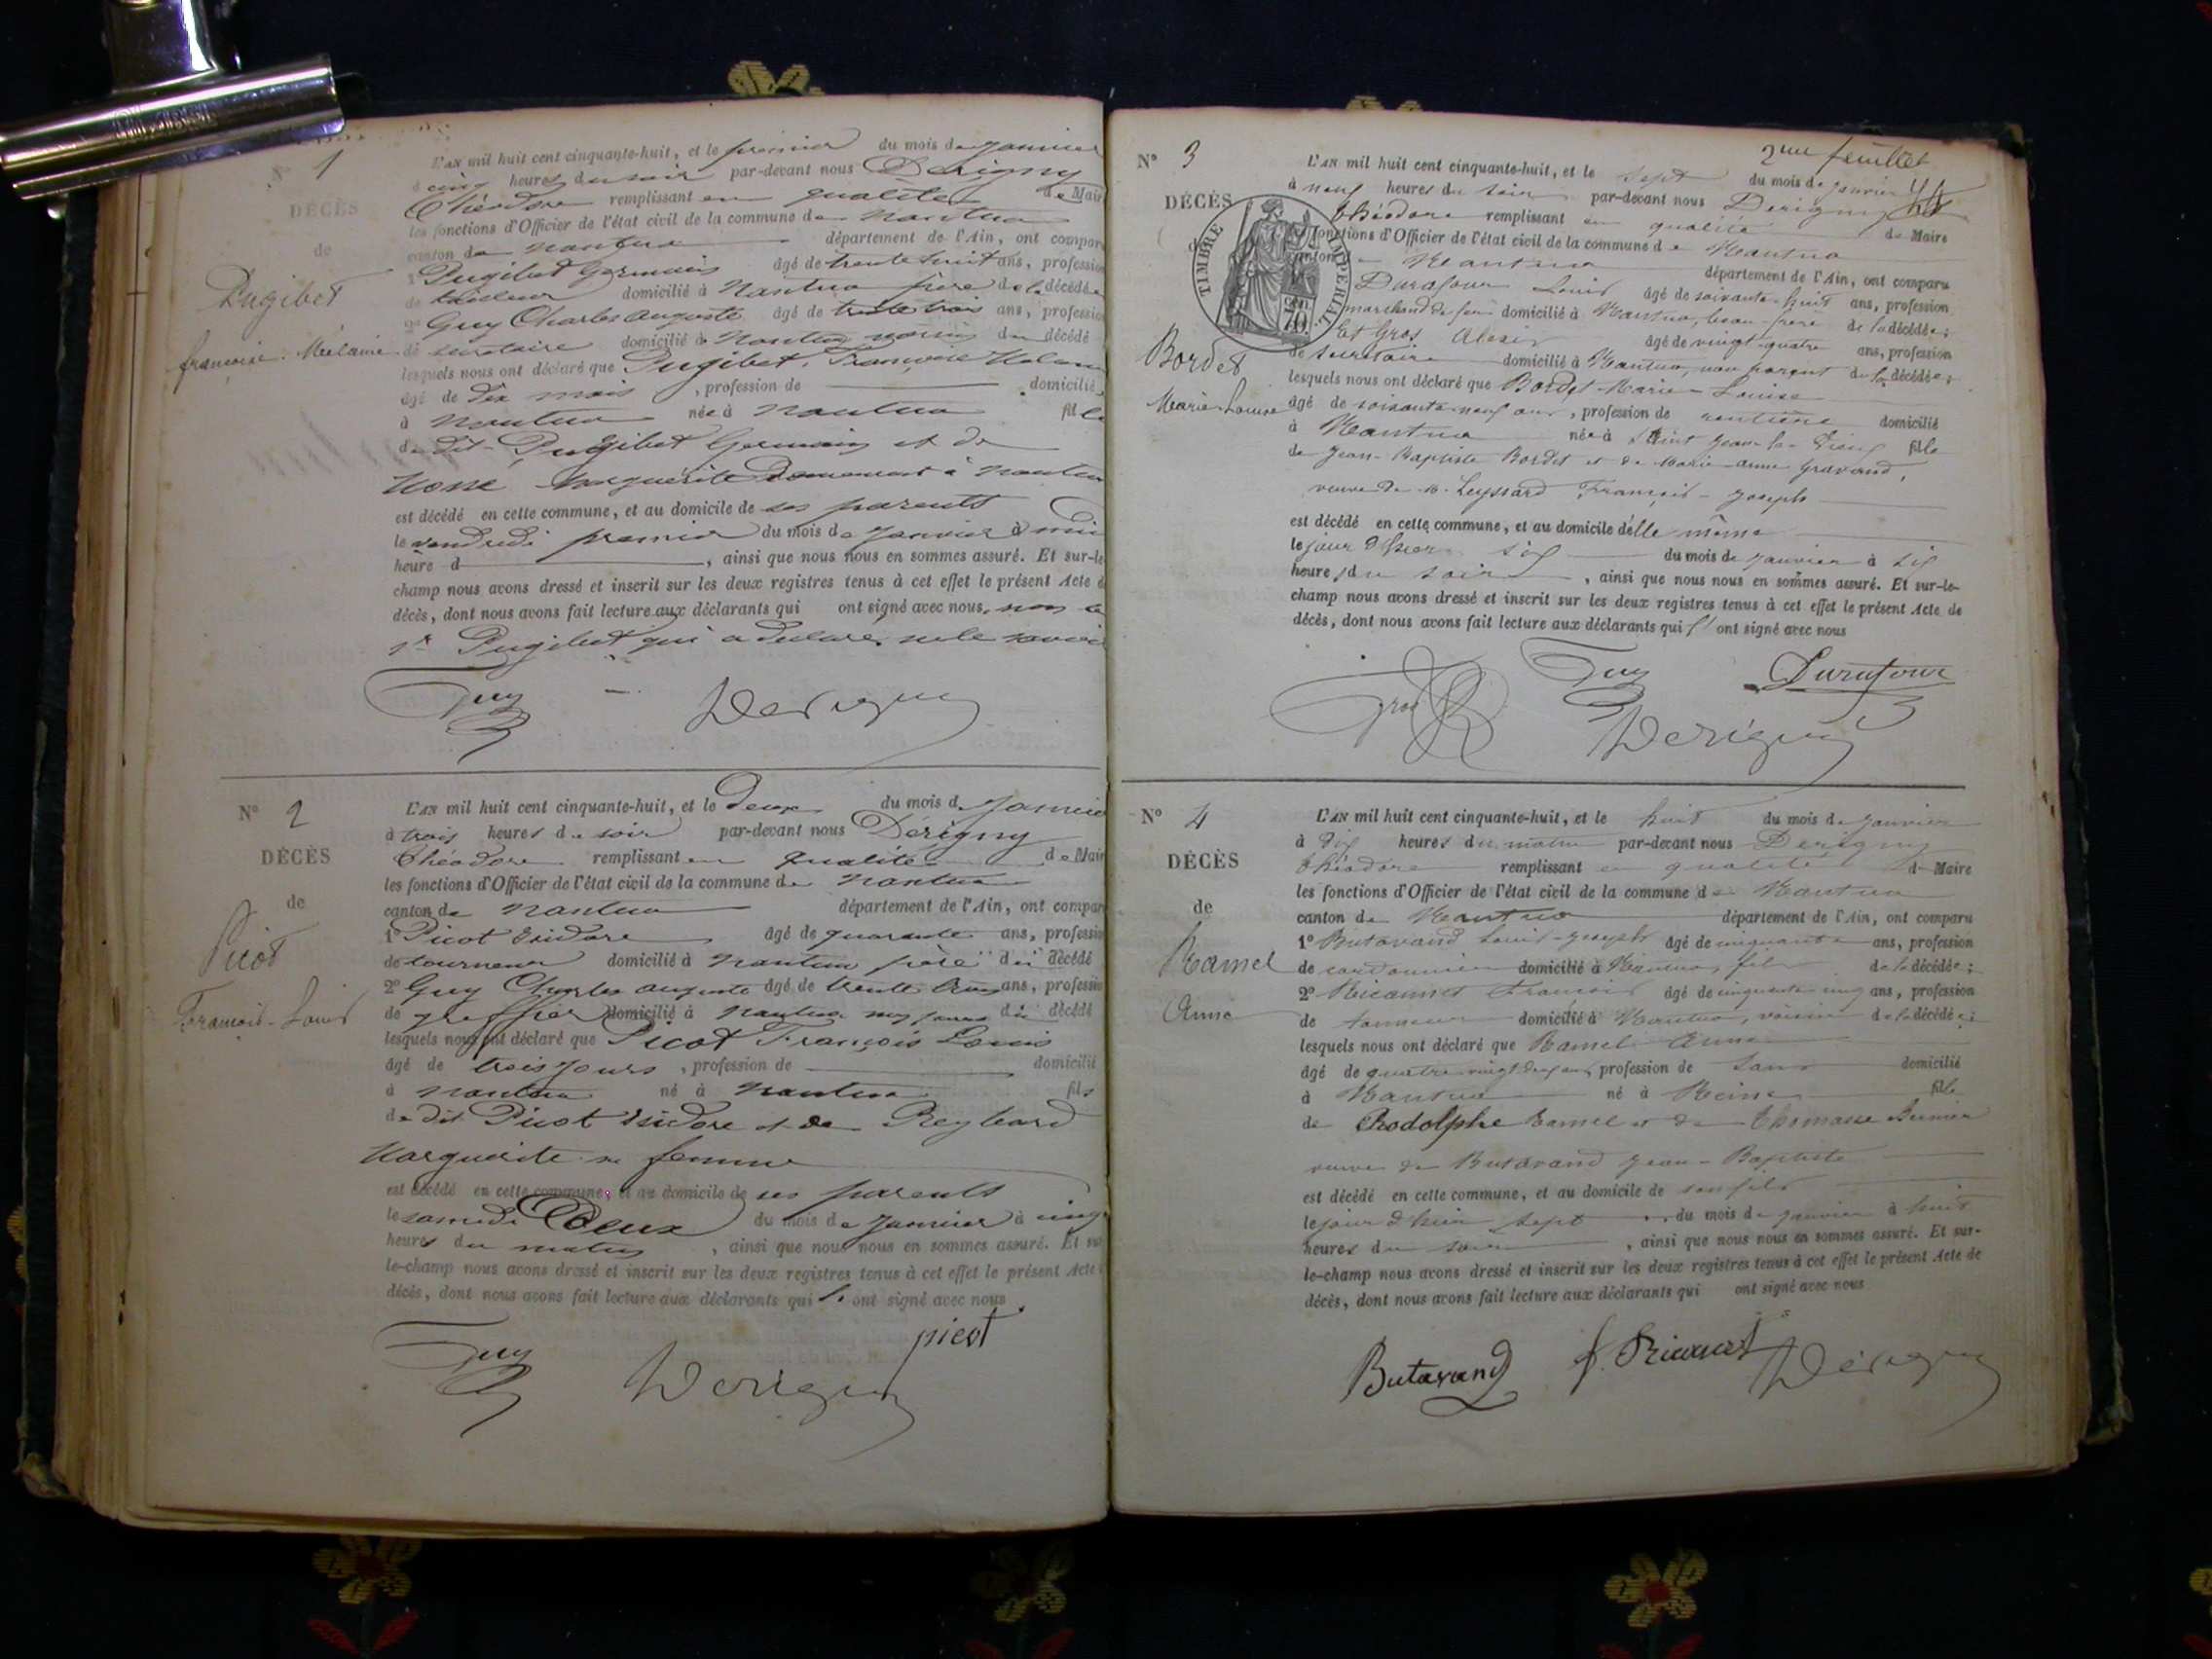 N° 1
DÉCÈS
de
Pugibet
françoise Mélanie
L'AN mil huit cent cinquante-huit, et le premier du mois de janvier
à cinq heures du soir par-devant nous Derigny
Théodore remplissant en qualité de Mair
les fonctions d'Officier de l'état civil de la commune de nantua
canton de nantua département de l'Ain, ont compar
1° Pugibet Germain âgé de trente huit ans, profession
de tailleur domicilié à Nantua père de la décédée
2° Guy Charles auguste âgé de trente trois ans, profession
de secretaire domicilié à Nantua voisin du décédé
lesquels nous ont déclaré que Pugibet, Françoise Melan
âgé de dix mois, profession de domicilié
à nantua née à nantua fille
de dit Pugibet Germain et de
Marguérite demeurant à nantua
est décédé en cette commune, et au domicile de ses parents
le vendredi premier du mois de janvier à midi
heure d , ainsi que nous nous en sommes assuré. Et sur-le-
champ nous avons dressé et inscrit sur les deux registres tenus à cet effet le présent Acte d
décès, dont nous avons fait lecture aux déclarants qui ont signé avec nous, non le
sr Pugibet qui a déclaré ne le savoir
Guy Derigny
N° 2
DÉCÈS
de
Picot
François-Louis
L'AN mil huit cent cinquante-huit, et le deux du mois de Janvier
à trois heures du soir par-devant nous Dérigny
Théodore remplissant en qualité de Mair
les fonctions d'Officier de l'état civil de la commune de nantua
canton de nantua département de l'Ain, ont compar
1° Picot Isidore âgé de quarante ans, professio
de tourneur domicilié à nantua père du décédé
2° Guy Charles auguste âgé de trente trois ans, professio
de greffier domicilié à nantua du décédé
lesquels nous ont déclaré que Picot François Louis
âgé de trois jours, profession de domicilié
à nantua né à nantua fils
de dit Picot Isidore et de Reybard
Marguerite sa femme
est décédé en cette commune, et au domicile de ses parents
le samedi Deux du mois de Janvier à cinq
heures du matin, ainsi que nous nous en sommes assuré. Et sur
le-champ nous avons dressé et inscrit sur les deux registres tenus à cet effet le présent Acte
décès, dont nous avons fait lecture aux déclarants qui ont signé avec nous
Guy Derigny picot
2me feuillet
N° 3
DÉCÈS
TIMBRE IMPERIAL
70
Bordet
Marie-Louise
L'AN mil huit cent cinquante-huit, et le sept du mois de janvier
à neuf heures du soir par-devant nous Derigny
théodore remplissant en qualité de Maire
fonctions d'Officier de l'état civil de la commune de Nantua
canton de Nantua département de l'Ain, ont comparu
Durafour Louis âgé de soixante-huit ans, profession
marchand de fer domicilié à Nantua, beau-frère de la décédée;
Et Gros Alexis âgé de vingt-quatre ans, profession
de secrétaire domicilié à Nantua, non parent de la décédée;
lesquels nous ont déclaré que Bordet Marie-Louise
âgé de soixante-neuf ans, profession de rentière domicilié
à Nantua née à Saint Jean-le-Vieux fille
de Jean-Baptiste Bordet et de Marie-anne Gravand,
veuve de M. Leyssard François-Joseph
est décédé en cette commune, et au domicile d'elle même
le jour d'hier six du mois de janvier à six
heures du soir, ainsi que nous nous en sommes assuré. Et sur-le-
champ nous avons dressé et inscrit sur les deux registres tenus à cet effet le présent Acte de
décès, dont nous avons fait lecture aux déclarants qui ont signé avec nous
Gros Guy Durafour
Derigny
N° 4
DÉCÈS
de
Ramel
Anne
L'AN mil huit cent cinquante-huit, et le huit du mois de janvier
à dix heures du matin par-devant nous Derigny
théodore remplissant en qualité de Maire
les fonctions d'Officier de l'état civil de la commune de Nantua
canton de Nantua département de l'Ain, ont comparu
1° Butavand Louis-joseph âgé de cinquante ans, profession
de cordonnier domicilié à Nantua, fils de la décédée;
2° Ricannet François âgé de cinquante cinq ans, profession
de tanneur domicilié à Nantua, voisin de la décédée;
lesquels nous ont déclaré que Ramel Anne
âgé de quatre-vingt-dix ans, profession de sans domicilié
à Nantua né à fille
de Rodolphe Ramel et de Thomasse
veuve de Butavand Jean-Baptiste
est décédé en cette commune, et au domicile de son fils
le jour d'hier sept du mois de janvier à huit
heures du soir, ainsi que nous nous en sommes assuré. Et sur-
le-champ nous avons dressé et inscrit sur les deux registres tenus à cet effet le présent Acte de
décès, dont nous avons fait lecture aux déclarants qui ont signé avec nous
Butavand f. Ricannet Dérigny